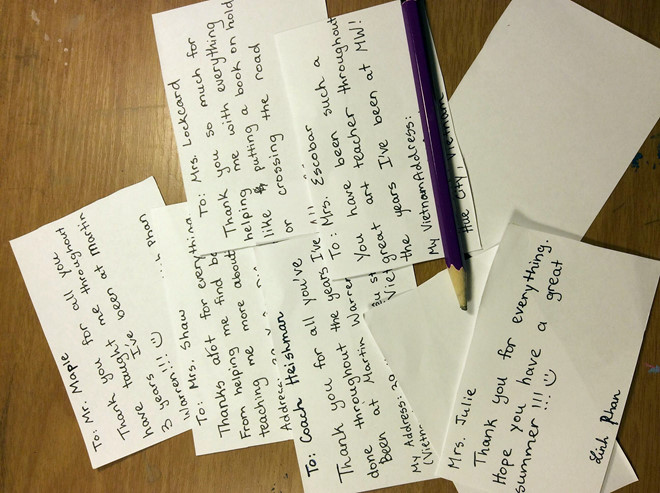 To: Mr. Maple
Thank you for all you
have taught me throughout
3 years I've been at Martin
Warren!!! :)
phan
To: Mrs. Shaw
Thanks alot for everything
From helping me find
teaching me more about
Address:
To: Mrs. Lockcard
Thank you so much for
helping me with everything
like putting a book on hold
or crossing the road
To: Coach Heishman
Thank you for all you've
done throughout the years I've
Been at Martin Warren
My Address:
To: Mrs. Escobar
You have been such a
great art teacher throughout
the years I've been at MW!
My VietnamAddress:
Hue City, Vietnam
Mrs. Julie
Thank you for everything.
Hope you have a great
summer!!! :)
Linh Phan